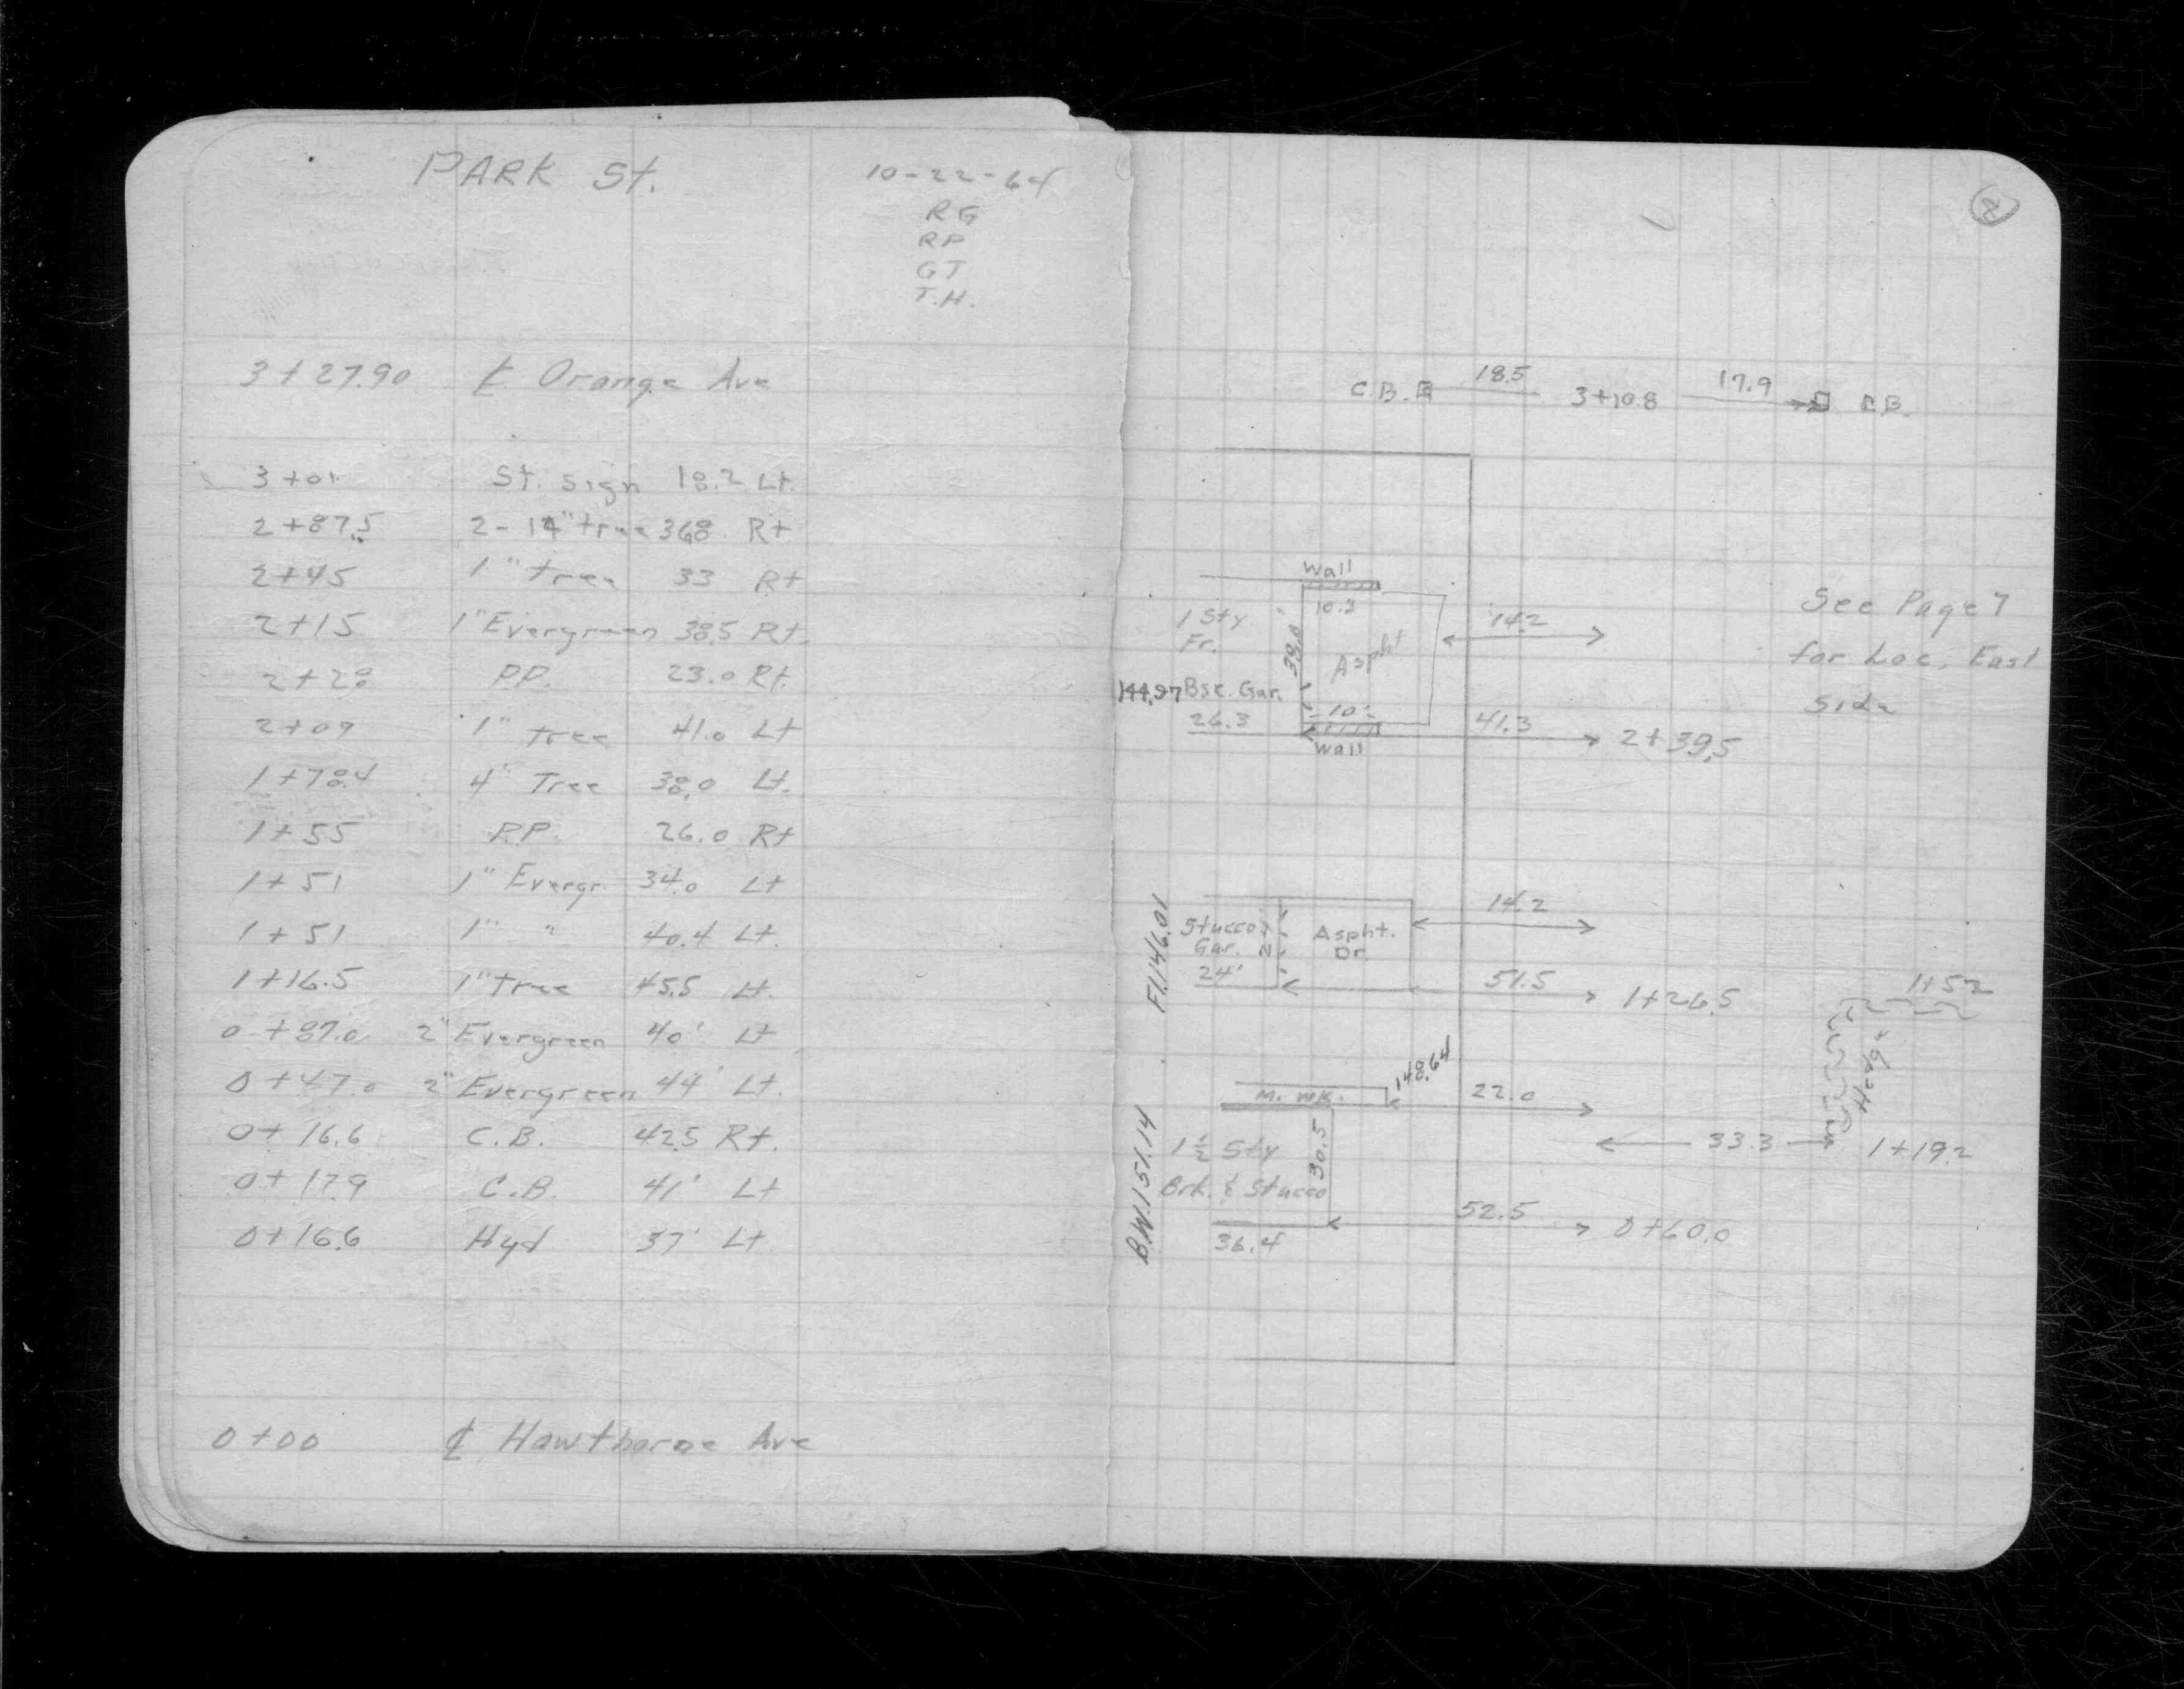 PARK St.
10-22-64
RG
RP
GT
T.H.
3+27.90 ℄ Orange Ave
3+01 St. sign 18.2 Lt.
2+87.5 2-14" tree 36.8 Rt
2+45 1" tree 33 Rt
2+15 1" Evergreen 38.5 Rt.
2+28 P.P. 23.0 Rt.
2+09 1" tree 41.0 Lt
1+78.4 4" Tree 38.0 Lt.
1+55 P.P. 26.0 Rt
1+51 1" Evergr. 34.0 Lt
1+51 1" " 40.4 Lt.
1+16.5 1" tree 45.5 Lt.
0+87.0 2" Evergreen 40' Lt
0+47.0 2" Evergreen 44' Lt.
0+16.6 C.B. 42.5 Rt.
0+17.9 C.B. 41' Lt
0+16.6 Hyd 37' Lt
0+00 ℄ Hawthorne Ave
8
C.B. 18.5 3+10.8 17.9 C.B.
Wall
10.3
1 Sty
Fr.
38.0
Aspht
14.2
See Page 7
for Loc. East
Side
144.97 Bse. Gar.
26.3
10'
Wall
41.3 2+39.5
Fl.146.01
Stucco
Gar.
24'
Aspht.
Dr
14.2
51.5 1+26.5
1+52
Hedge
33.3 1+19.2
148.64
M. WK.
22.0
B.W.151.14
1½ Sty
Brk. & Stucco
30.5
36.4
52.5 0+60.0